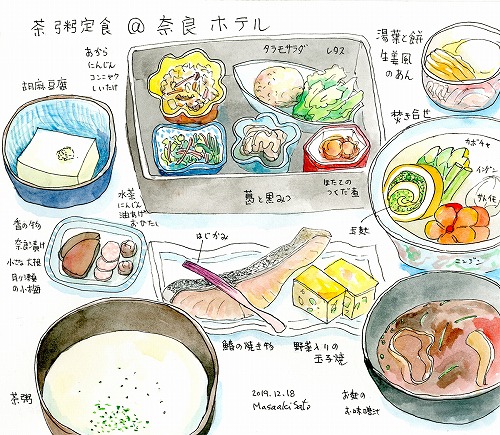 茶粥定食 @ 奈良 ホテル
おから
にんじん
コンニャク
しいたけ
タラモサラダ
レタス
湯葉と餅
生姜風
のあん
胡麻豆腐
焚き合せ
カボチャ
インゲン
ニンジン
水菜
にんじん
油あげ
おひたし
葛と黒みつ
ほたての
つくだ煮
香の物
奈良漬け
小さな大根
月ヶ瀬
の小梅
はじかみ
玉麩
鰆の焼き物
野菜入りの
玉子焼
茶粥
2019.12.18
Masaaki Sato
お麩の
お味噌汁